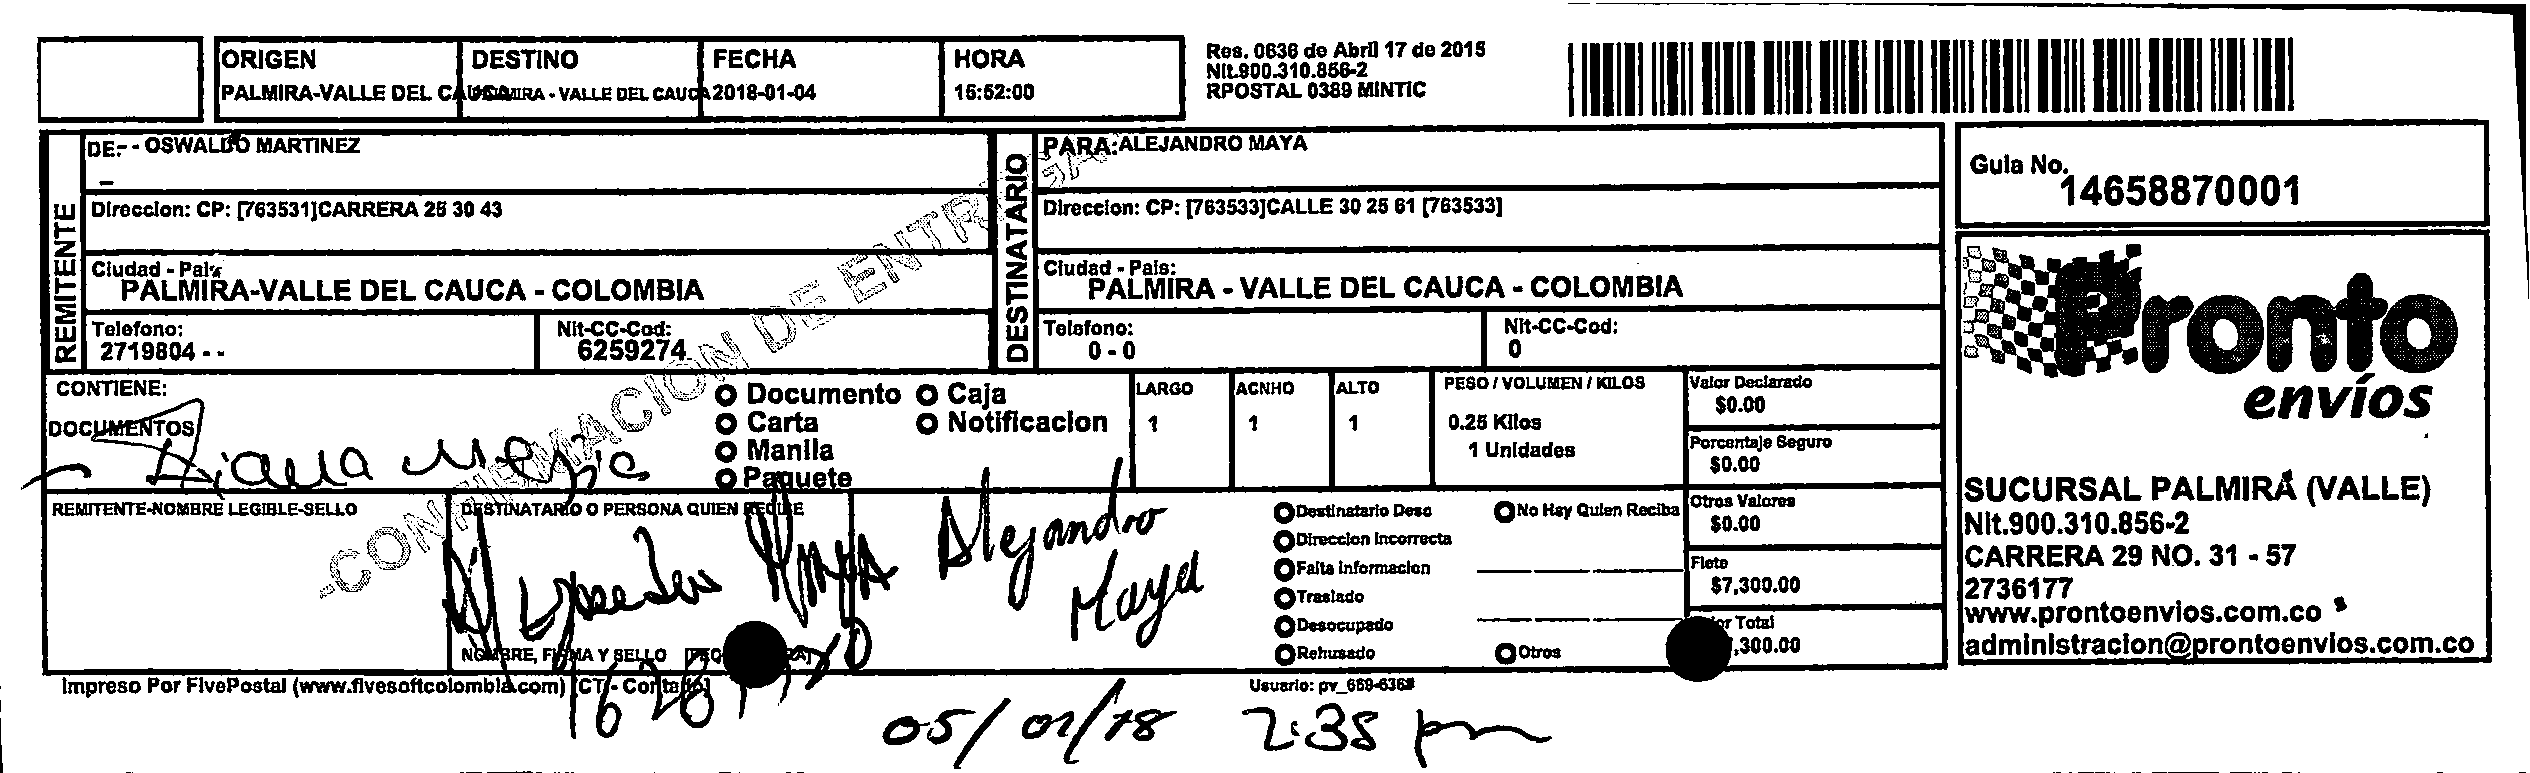 ORIGEN DESTINO FECHA HORA
PALMIRA-VALLE DEL CAUCA PALMIRA - VALLE DEL CAUCA 2018-01-04 15:52:00
Res. 0636 de Abril 17 de 2015
Nit.900.310.856-2
RPOSTAL 0389 MINTIC
REMITENTE
DE:- - OSWALDO MARTINEZ
Direccion: CP: [763531]CARRERA 25 30 43
Ciudad - Pais:
PALMIRA-VALLE DEL CAUCA - COLOMBIA
Telefono: Nit-CC-Cod:
2719804 - - 6259274
DESTINATARIO
PARA:ALEJANDRO MAYA
Direccion: CP: [763533]CALLE 30 25 61 [763533]
Ciudad - Pais:
PALMIRA - VALLE DEL CAUCA - COLOMBIA
Telefono: Nit-CC-Cod:
0 - 0 0
Guia No.
14658870001
Pronto
envíos
SUCURSAL PALMIRA (VALLE)
Nit.900.310.856-2
CARRERA 29 NO. 31 - 57
2736177
www.prontoenvios.com.co
administracion@prontoenvios.com.co
-CONFIRMACION DE ENTREGA-
CONTIENE:
DOCUMENTOS
Diana Mejia
Documento Caja
Carta Notificacion
Manila
Paquete
LARGO ACNHO ALTO PESO / VOLUMEN / KILOS
1 1 1 0.25 Kilos
1 Unidades
Valor Declarado
$0.00
Porcentaje Seguro
$0.00
Otros Valores
$0.00
Flete
$7,300.00
Total
,300.00
REMITENTE-NOMBRE LEGIBLE-SELLO
DESTINATARIO O PERSONA QUIEN RECIBE
Maya Alejandro
Maya
NOMBRE, FIRMA Y SELLO
Destinatario Desc No Hay Quien Reciba
Direccion Incorrecta
Falta Informacion
Traslado
Desocupado
Rehusado Otros
Impreso Por FivePostal (www.fivesoftcolombia.com) [CT - Contado]
Usuario:
05/01/18 2:38 pm